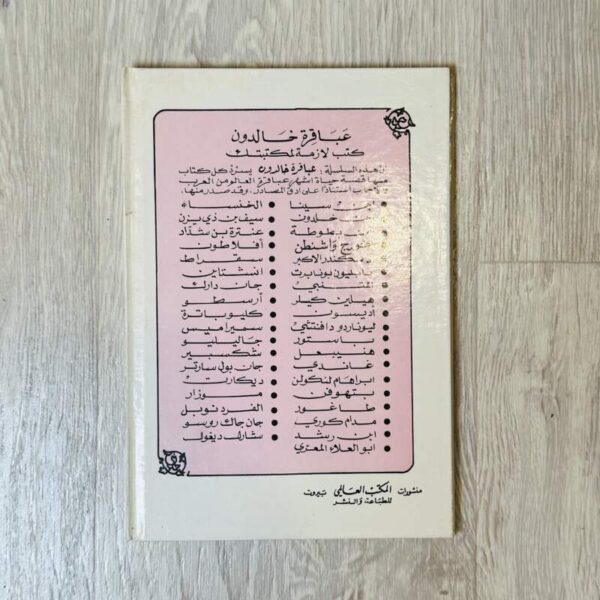 عباقرة خالدون
كتب لازمة لمكتبتك
هذه السلسلة: عباقرة خالدون يسرد كل كتاب
منها قصة حياة اشهر عباقرة العالم من العرب
والأجانب استناداً على ادق المصادر. وقد صدر منها.
• ابن سينا
• خلدون
• بطوطة
• جورج واشنطن
• الاكبر
• نابليون بونابرت
• المتنبي
• هيلين كيلر
• أديسون
• ليوناردو دافنتشي
• باستور
• هنيبعل
• غاندي
• ابراهام لنكولن
• بتهوفن
• طاغور
• مدام كوري
• ابن رشد
• ابو العلاء المعري
• الخنساء
• سيف بن ذي يزن
• عنترة بن شداد
• أفلاطون
• سقراط
• انشتاين
• جان دارك
• أرسطو
• كليوباترة
• سميراميس
• جاليليو
• شكسبير
• جان بول سارتر
• ديكارت
• موزار
• الفرد نوبل
• جان جاك روسو
• شارل ديغول
منشورات المكتب العالمي بيروت
للطباعة والنشر